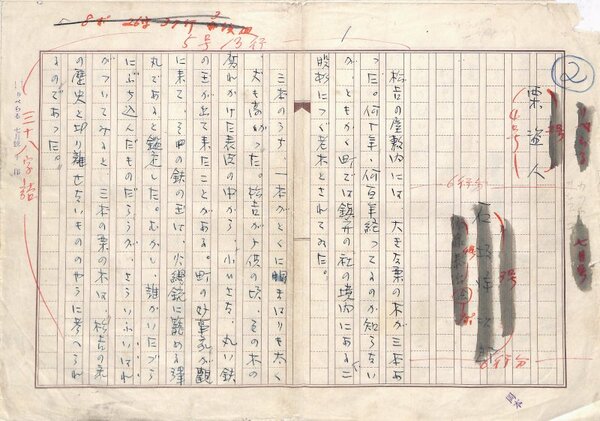 8ポ 26字
5号 13行
1
②
栗盗人
4号
2号
6行分
石坂洋次郎
6行分
三十八字詰
松吉の屋敷内には、大きな栗の木が三本あ
った。何十年、何百年経ってるのか知らない
が、ともかく町では鎮守の社の境内にある二
股杉につぐ老木とされてゐた。
三本のうち、一本がとくに幹まはりも太く
、丈も高かった。松吉が子供の頃、その木の
腐れかけた表皮の中から、小いさな、丸い鉄
の玉が出て来たことがある。町の好事家が観
に来て、その鉄の玉は、火縄銃に籠める弾
丸であると鑑定した。むかし、誰かがいたづら
にぶち込んだものだらうが、さういふいはれ
がついてみると、三本の栗の木は、松吉の家
の歴史と切り離せないもののやうに考へられ
るのであった。